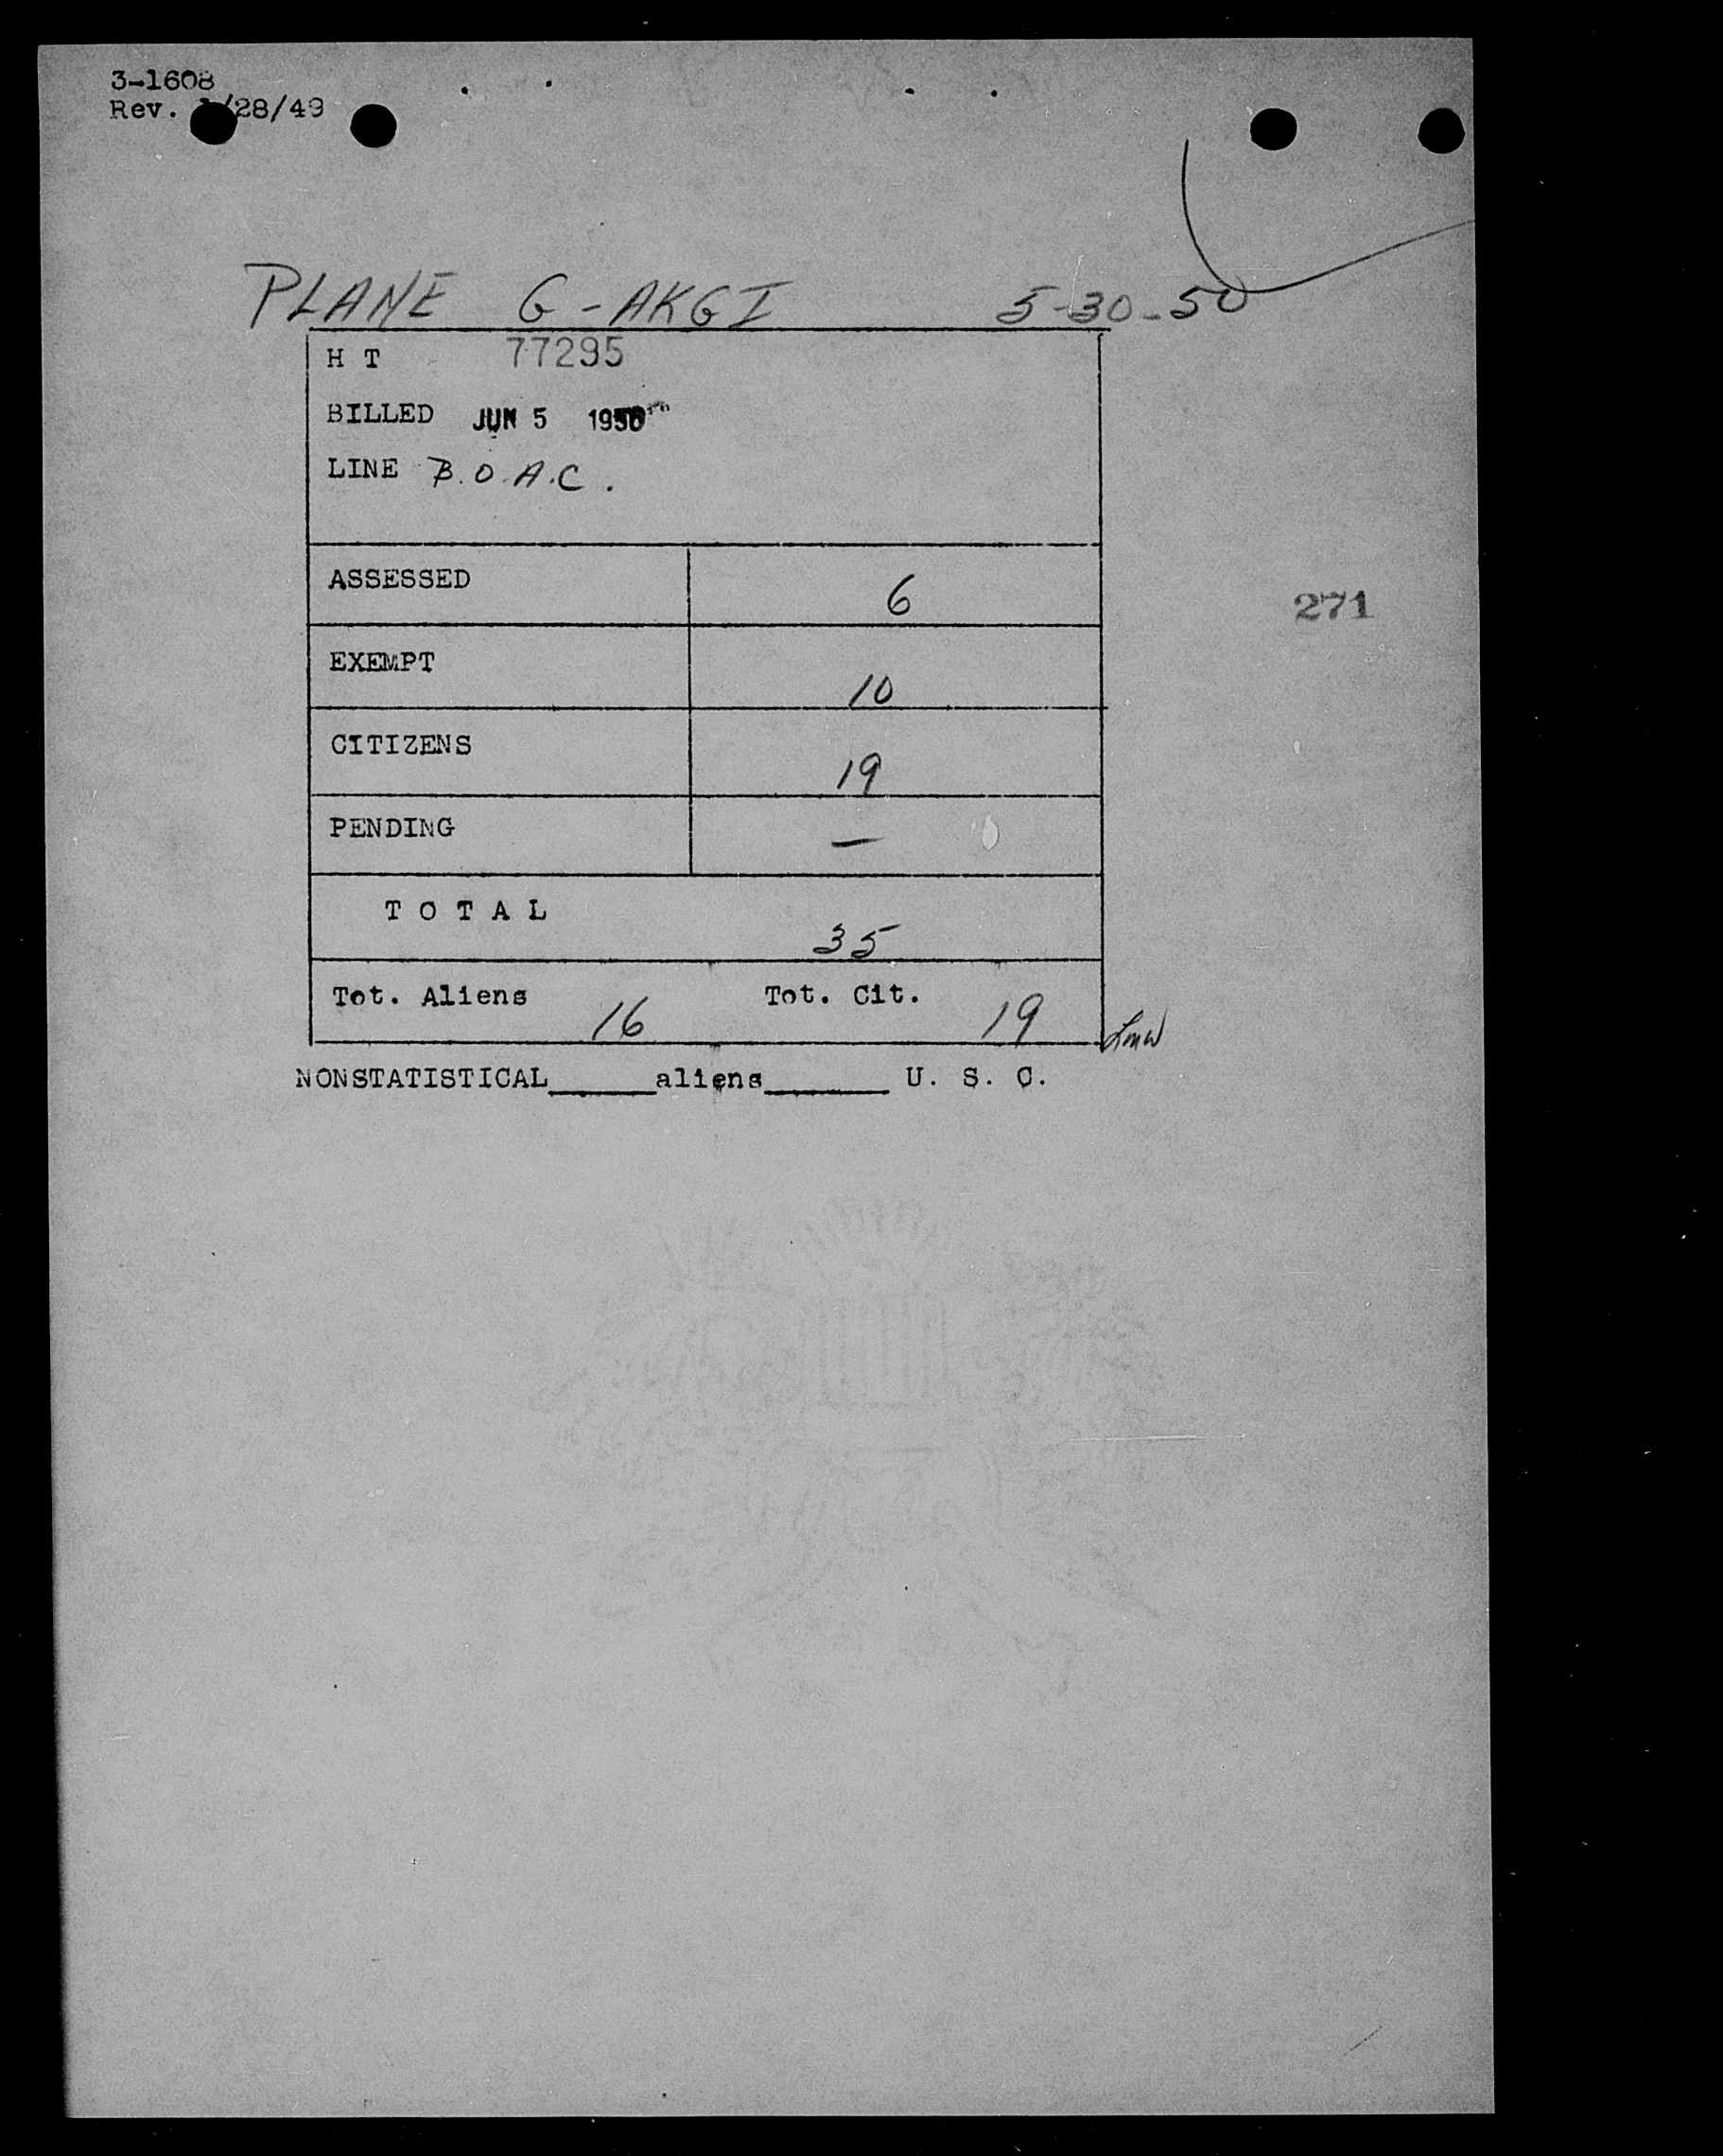 3-1608
Rev. /28/49
PLANE G-AKGI 5-30-50
H T 77295
BILLED JUN 5 1950
LINE B.O.A.C.
ASSESSED 6
271
EXEMPT 10
CITIZENS 19
PENDING —
T O T A L 35
Tot. Aliens 16 Tot. Cit. 19
NONSTATISTICAL______aliens_______ U. S. C.